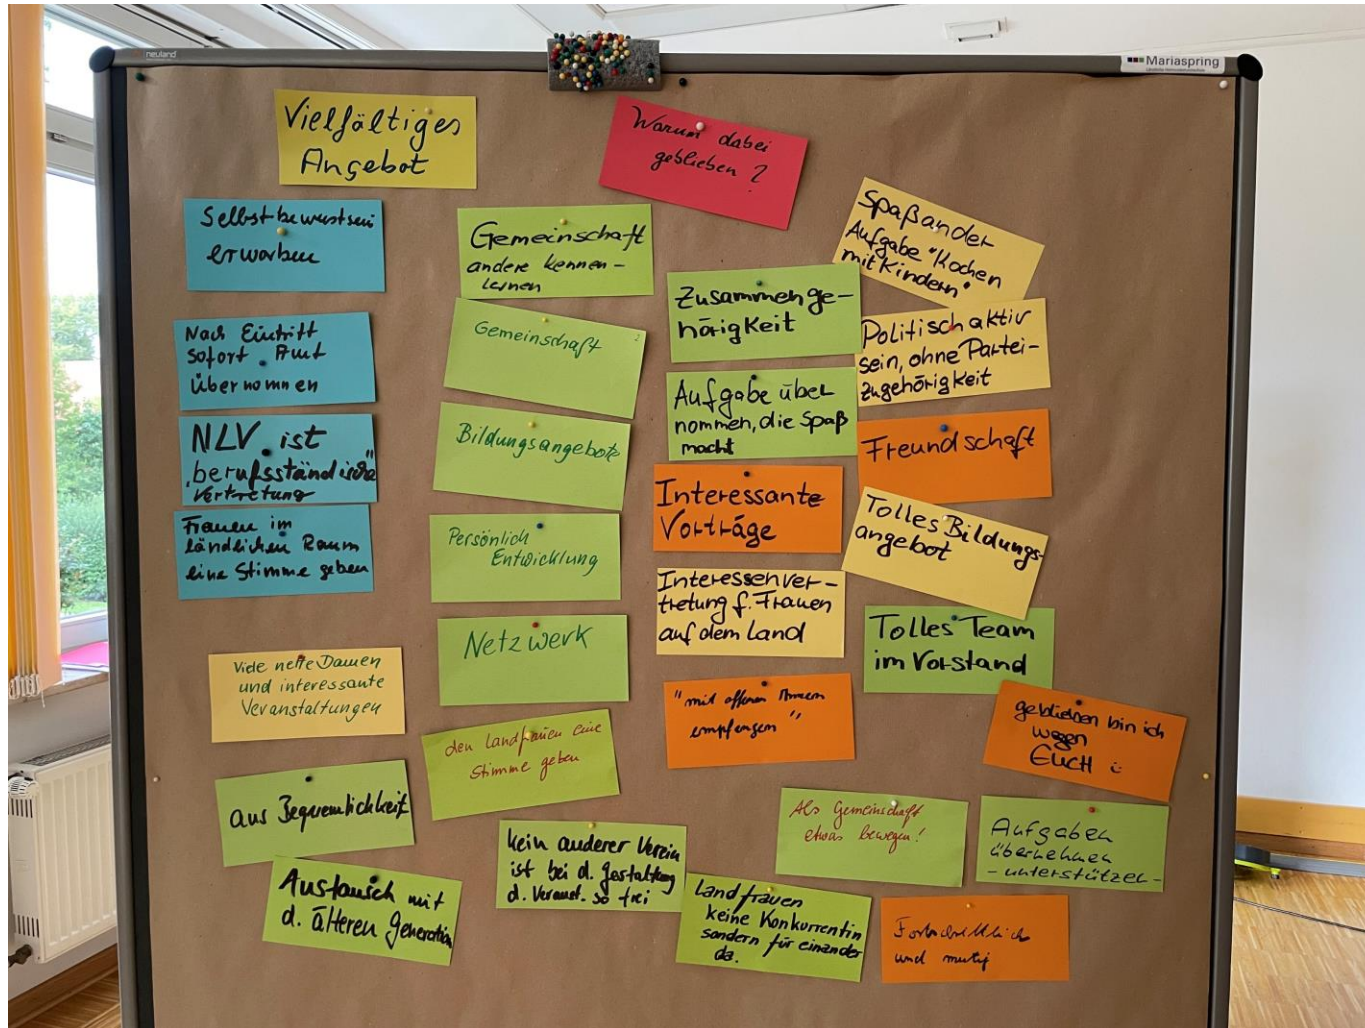 neuland
Mariaspring
Vielfältiges
Angebot
Warum dabei
geblieben?
Selbstbewustsein
erworben
Nach Eintritt
sofort Amt
übernommen
NLV ist
"berufsständische"
Vertretung
Frauen im
ländlichen Raum
eine Stimme geben
Viele nette Damen
und interessante
Veranstaltungen
aus Bequemlichkeit
Austausch mit
d. älteren Generation
Gemeinschaft
andere kennen-
lernen
Gemeinschaft
Bildungsangebote
Persönlich
Entwicklung
Netzwerk
den Landfrauen eine
Stimme geben
kein anderer Verein
ist bei d. Gestaltung
d. Veranst. so frei
Zusammenge-
hörigkeit
Aufgabe über
nommen, die Spaß
macht
Interessante
Vorträge
Interessenver-
tretung f. Frauen
auf dem Land
"mit offenen Armen
empfangen"
Landfrauen
keine Konkurrentin
sondern für einander
da.
Spaß an der
Aufgabe "Kochen
mit Kindern"
Politisch aktiv
sein, ohne Partei-
zugehörigkeit
Freundschaft
Tolles Bildungs-
angebot
Tolles Team
im Vorstand
geblieben bin ich
wegen
EUCH
Als Gemeinschaft
etwas bewegen!
Aufgaben
übernehmen
- unterstützen -
Fortschrittlich
und mutig